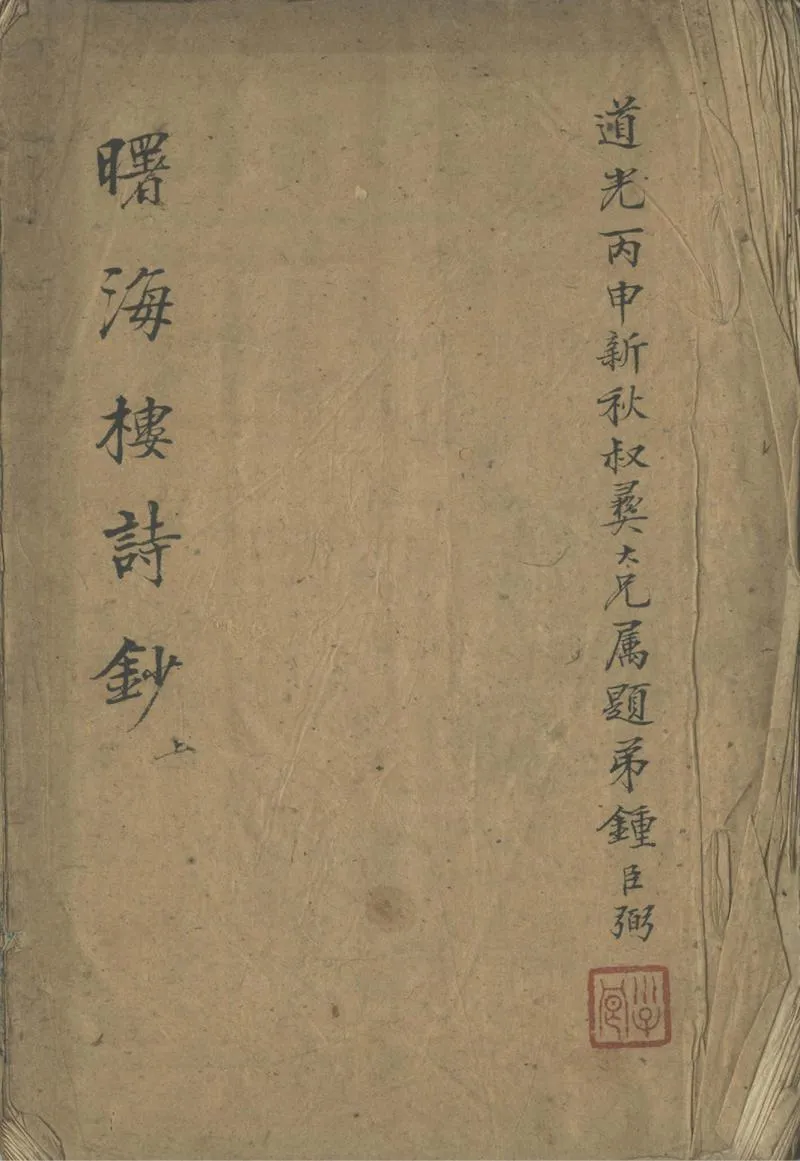 道光丙申新秋叔彝大兄属題弟鍾臣弼
曙海樓詩鈔 上